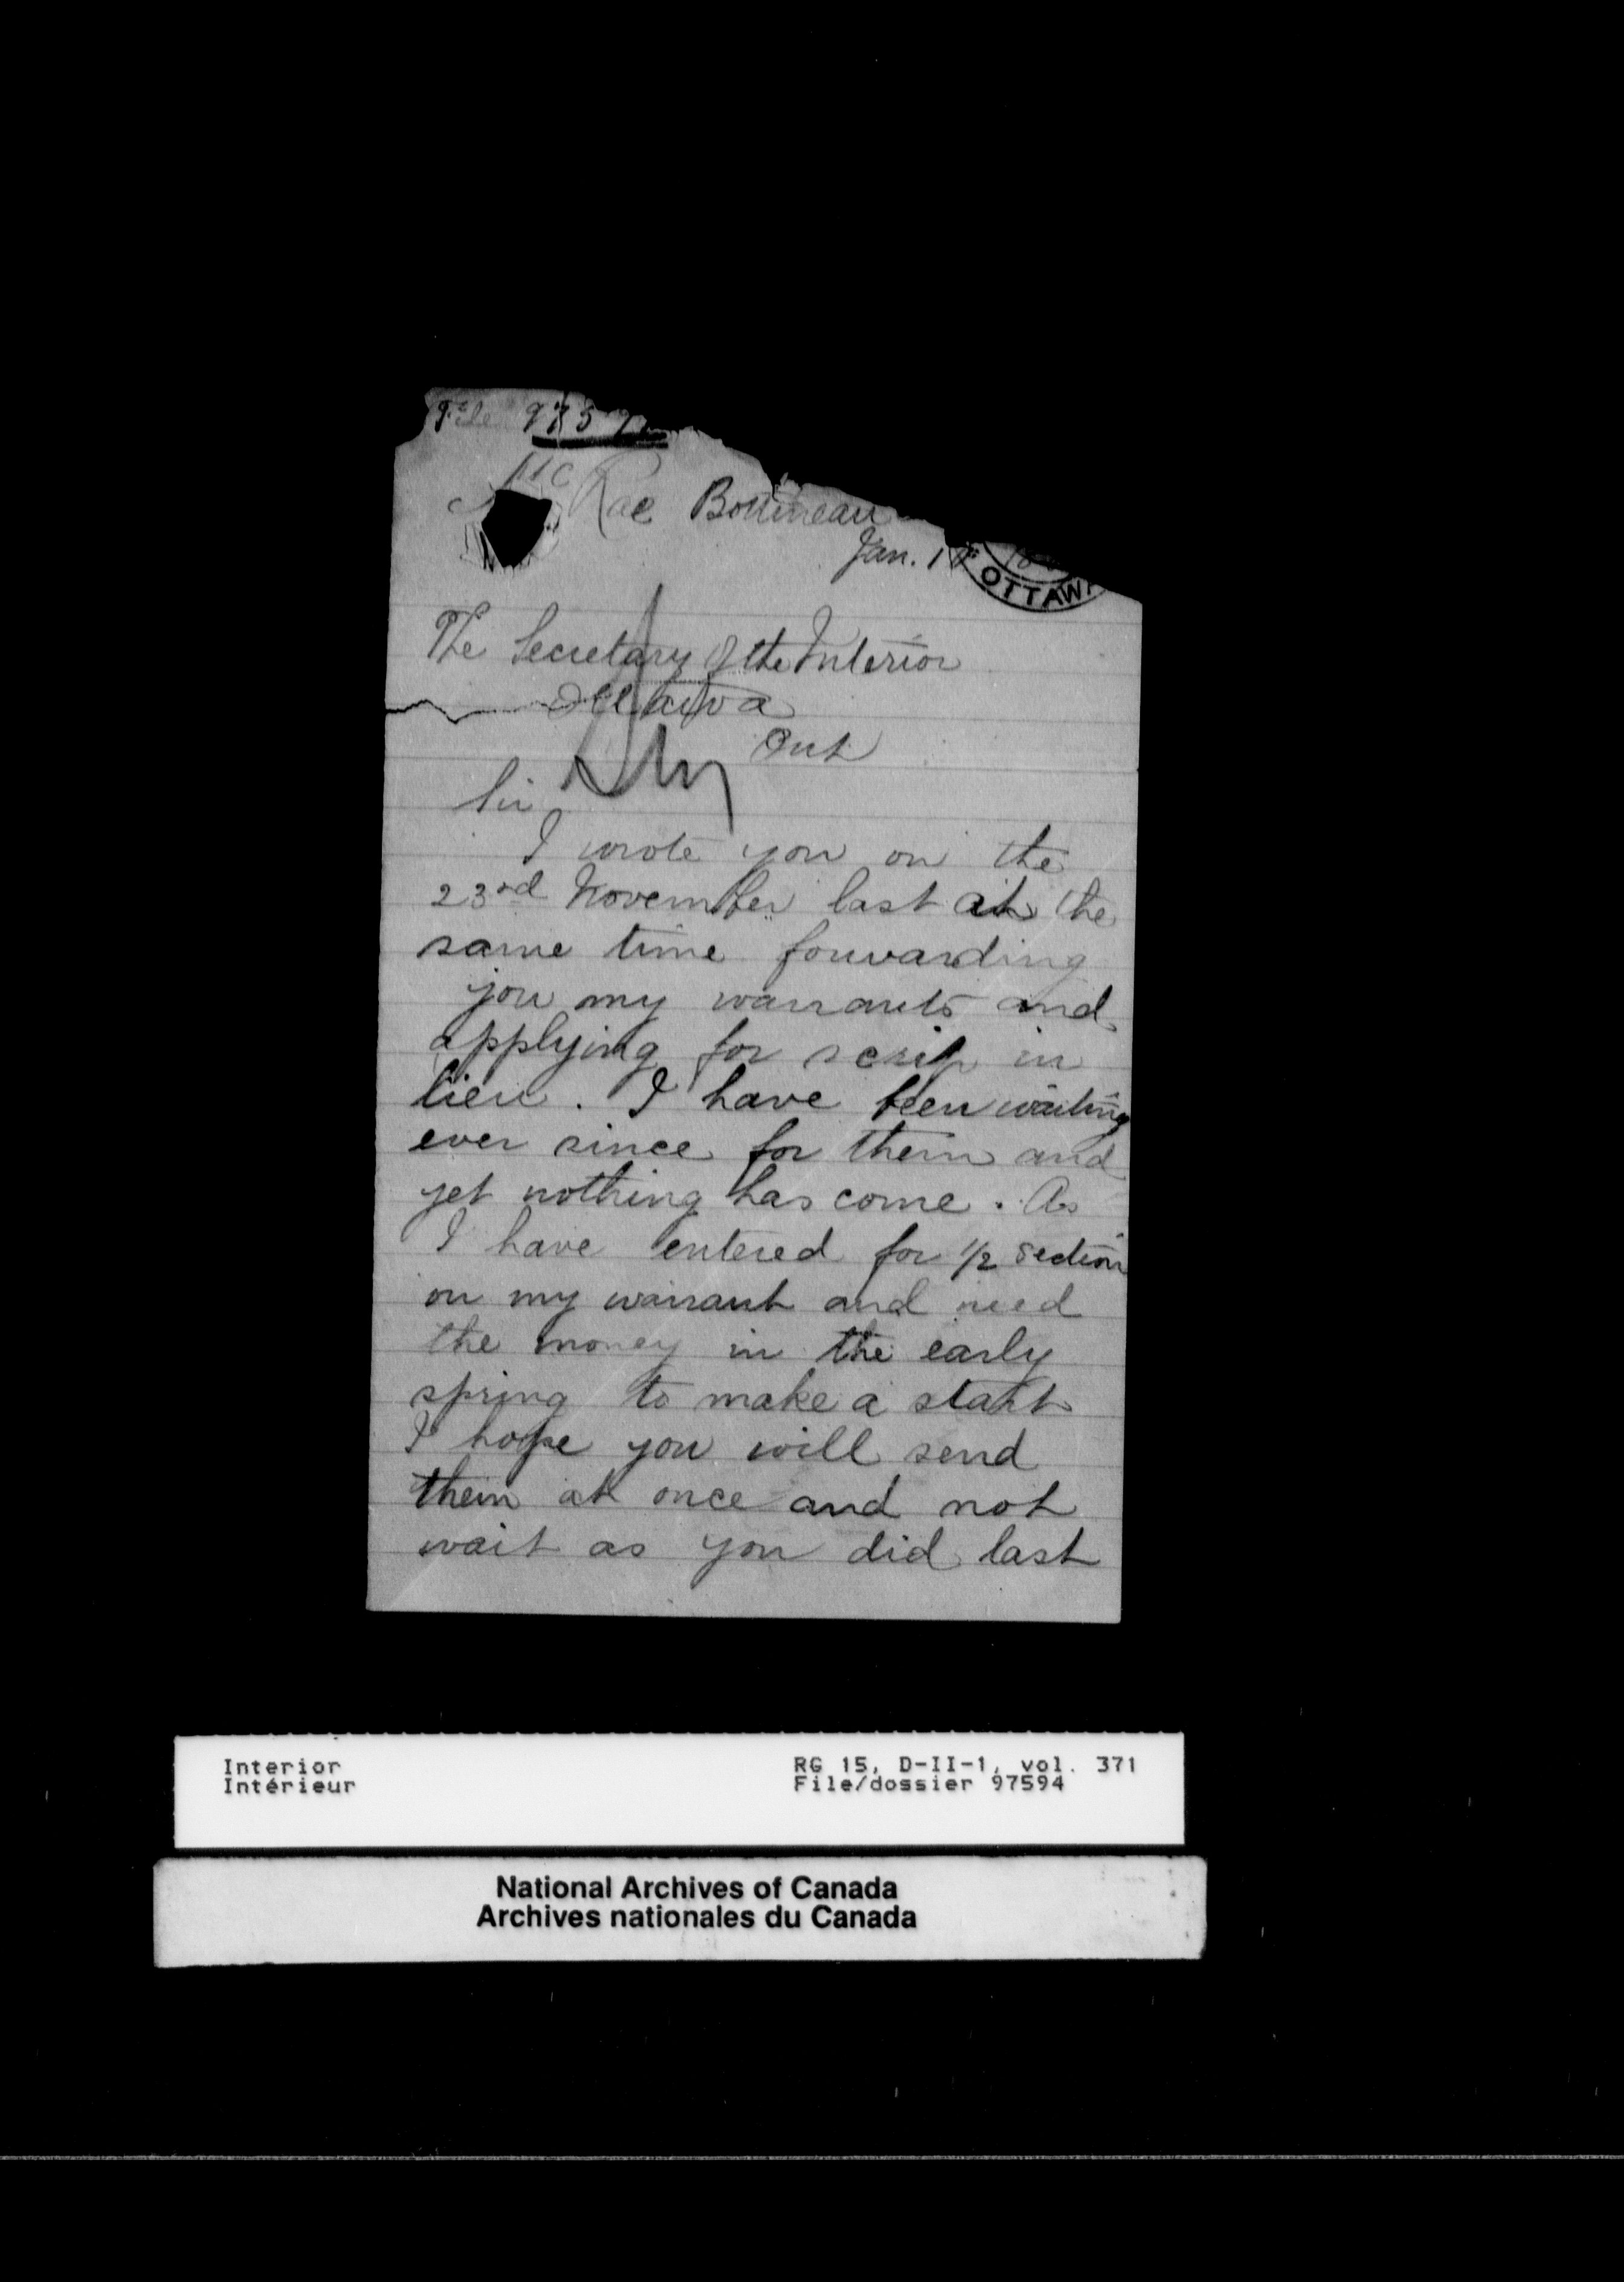 File 9759
McRae Bottineau
Jan. 1
OTTAWA
The Secretary of the Interior
Ottawa
Ont
Sir
I wrote you on the
23rd November last at the
same time forwarding
you my warrants and
applying for scrip in
lieu. I have been waiting
ever since for them and
yet nothing has come. As
I have entered for 1/2 section
on my warrant and need
the money in the early
spring to make a start
I hope you will send
them at once and not
wait as you did last
Interior
Intérieur
RG 15, D-II-1, vol. 371
File/dossier 97594
National Archives of Canada
Archives nationales du Canada